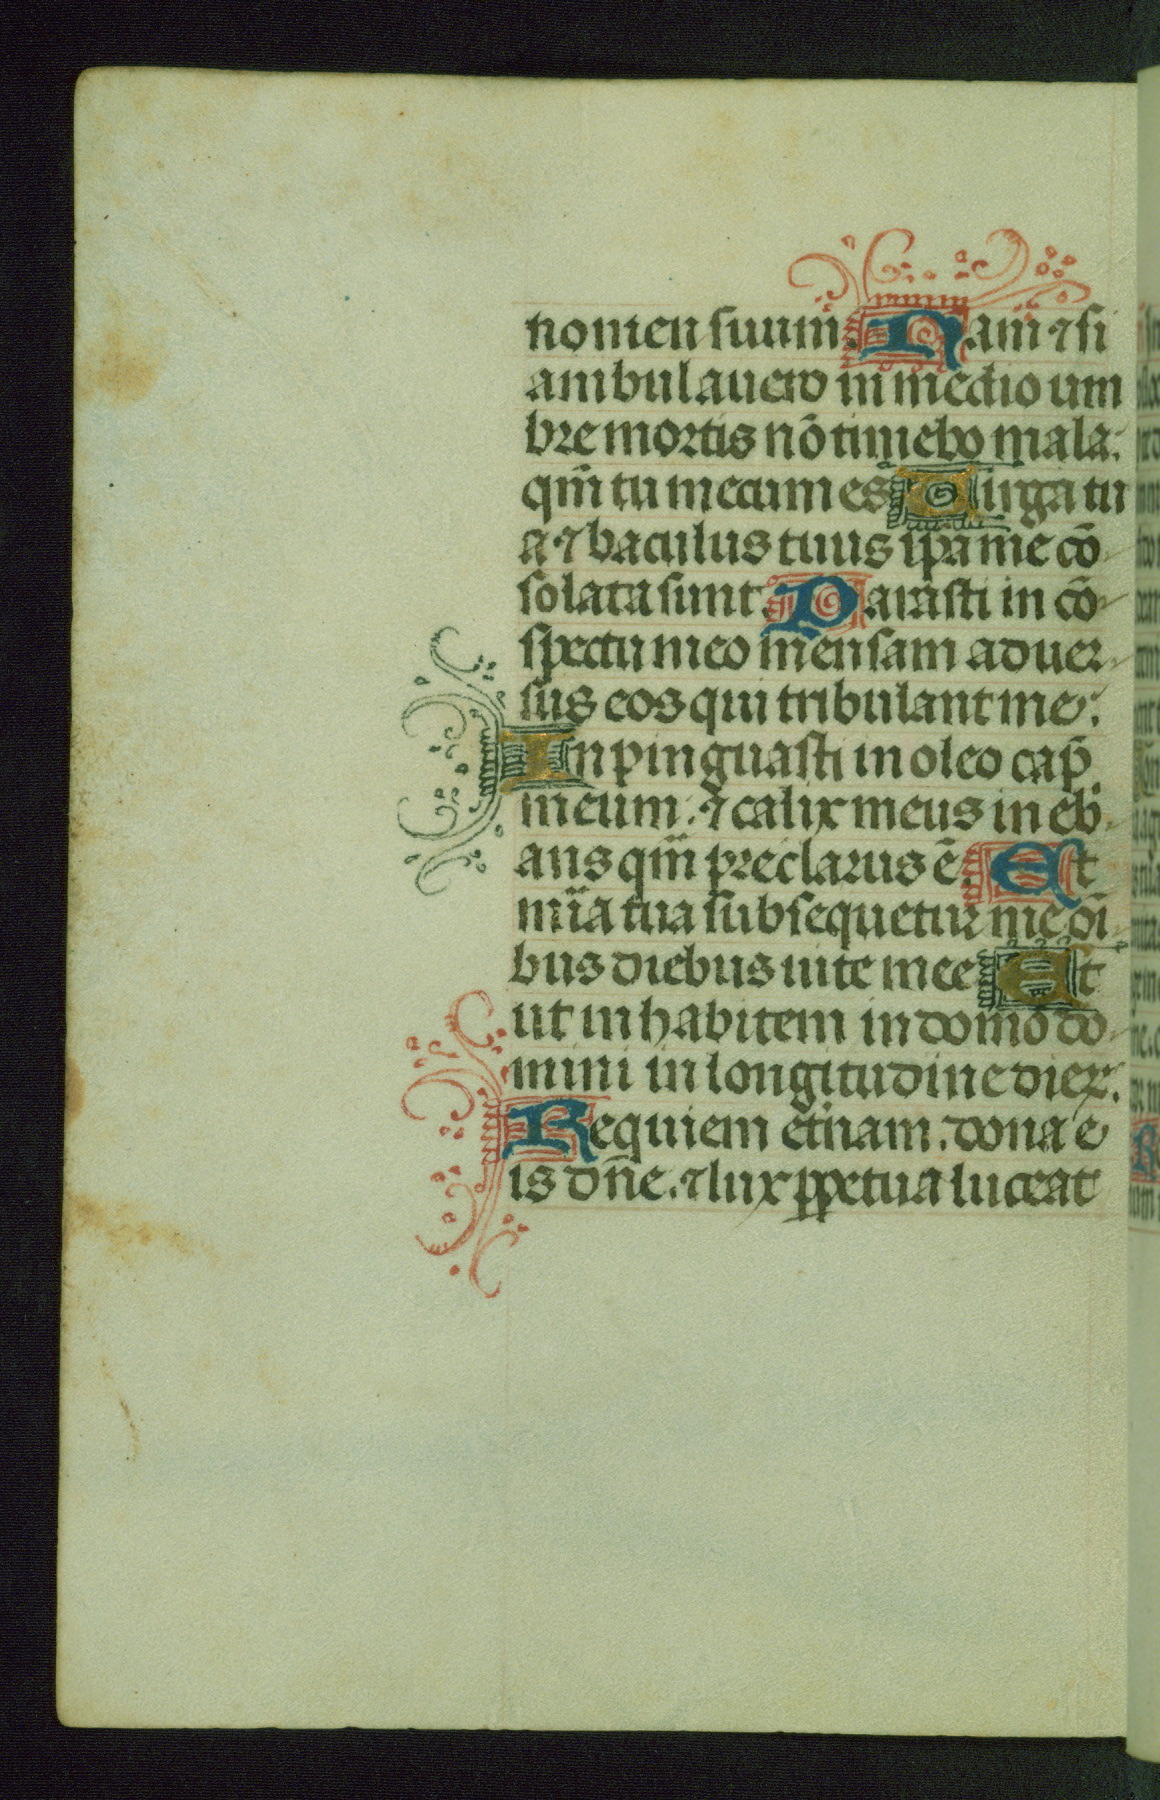 nomen suum. Nam ⁊ si
ambulauero in medio um
bre mortis nō timebo mala:
qm̄ tu mecum es Uirga tu
a ⁊ baculus tuus ip̄a me cō
solata sunt. Parasti in cō
spectu meo mensam aduer
sus eos qui tribulant me.
Inpinguasti in oleo cap̄
meum: ⁊ calix meus in eb̓
ans qm̄ preclarus ē. Et
mīa tua subsequetur me oī
bus diebus uite mee Et
ut inhabitem in domo do
mini in longitudine dier.
Requiem et̓nam. dona e
is dn̄e. ⁊ lux ꝑpetua luceat